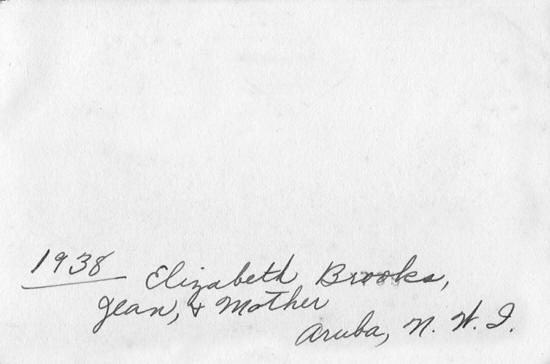 1938 Elizabeth Brooks,
Jean, & Mother
Aruba, N. W. I.